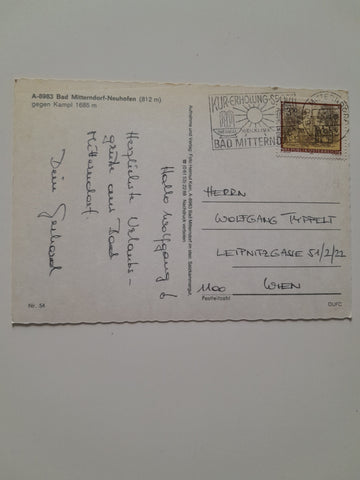 A-8983 Bad Mitterndorf-Neuhofen (812 m)
gegen Kampl 1685 m
Hallo Wolfgang!
Herzlichste Urlaubs-
grüße aus Bad
Mitterndorf.
Dein Gerhard
Nr. 54
KUR-ERHOLUNG-SPORT
BAD MITTERNDORF
HERRN
WOLFGANG TYPPELT
LEIPNITZGASSE 51/2/22
1100 WIEN
Postleitzahl